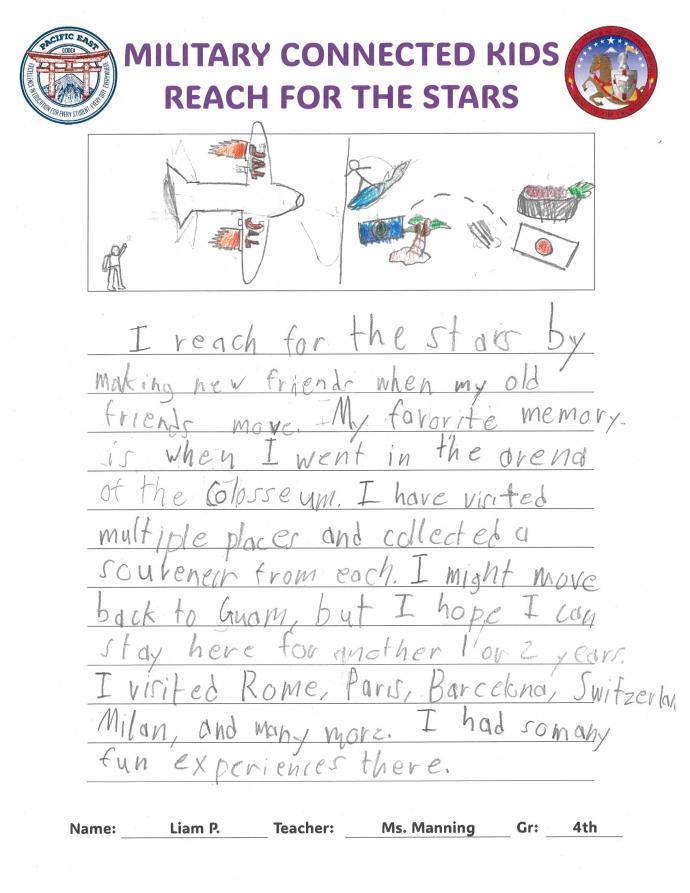 PACIFIC EAST
DODEA
EXCELLENCE IN EDUCATION FOR EVERY STUDENT, EVERY DAY, EVERYWHERE
MILITARY CONNECTED KIDS
REACH FOR THE STARS
I reach for the stars by
making new friends when my old
friends move. My favorite memory
is when I went in the arena
of the Colosseum. I have visited
multiple places and collected a
souveneir from each. I might move
back to Guam, but I hope I can
stay here for another 1 or 2 years.
I visited Rome, Paris, Barcelona, Switzerlan
Milan, and many more. I had somany
fun experiences there.
Name: Liam P. Teacher: Ms. Manning Gr: 4th